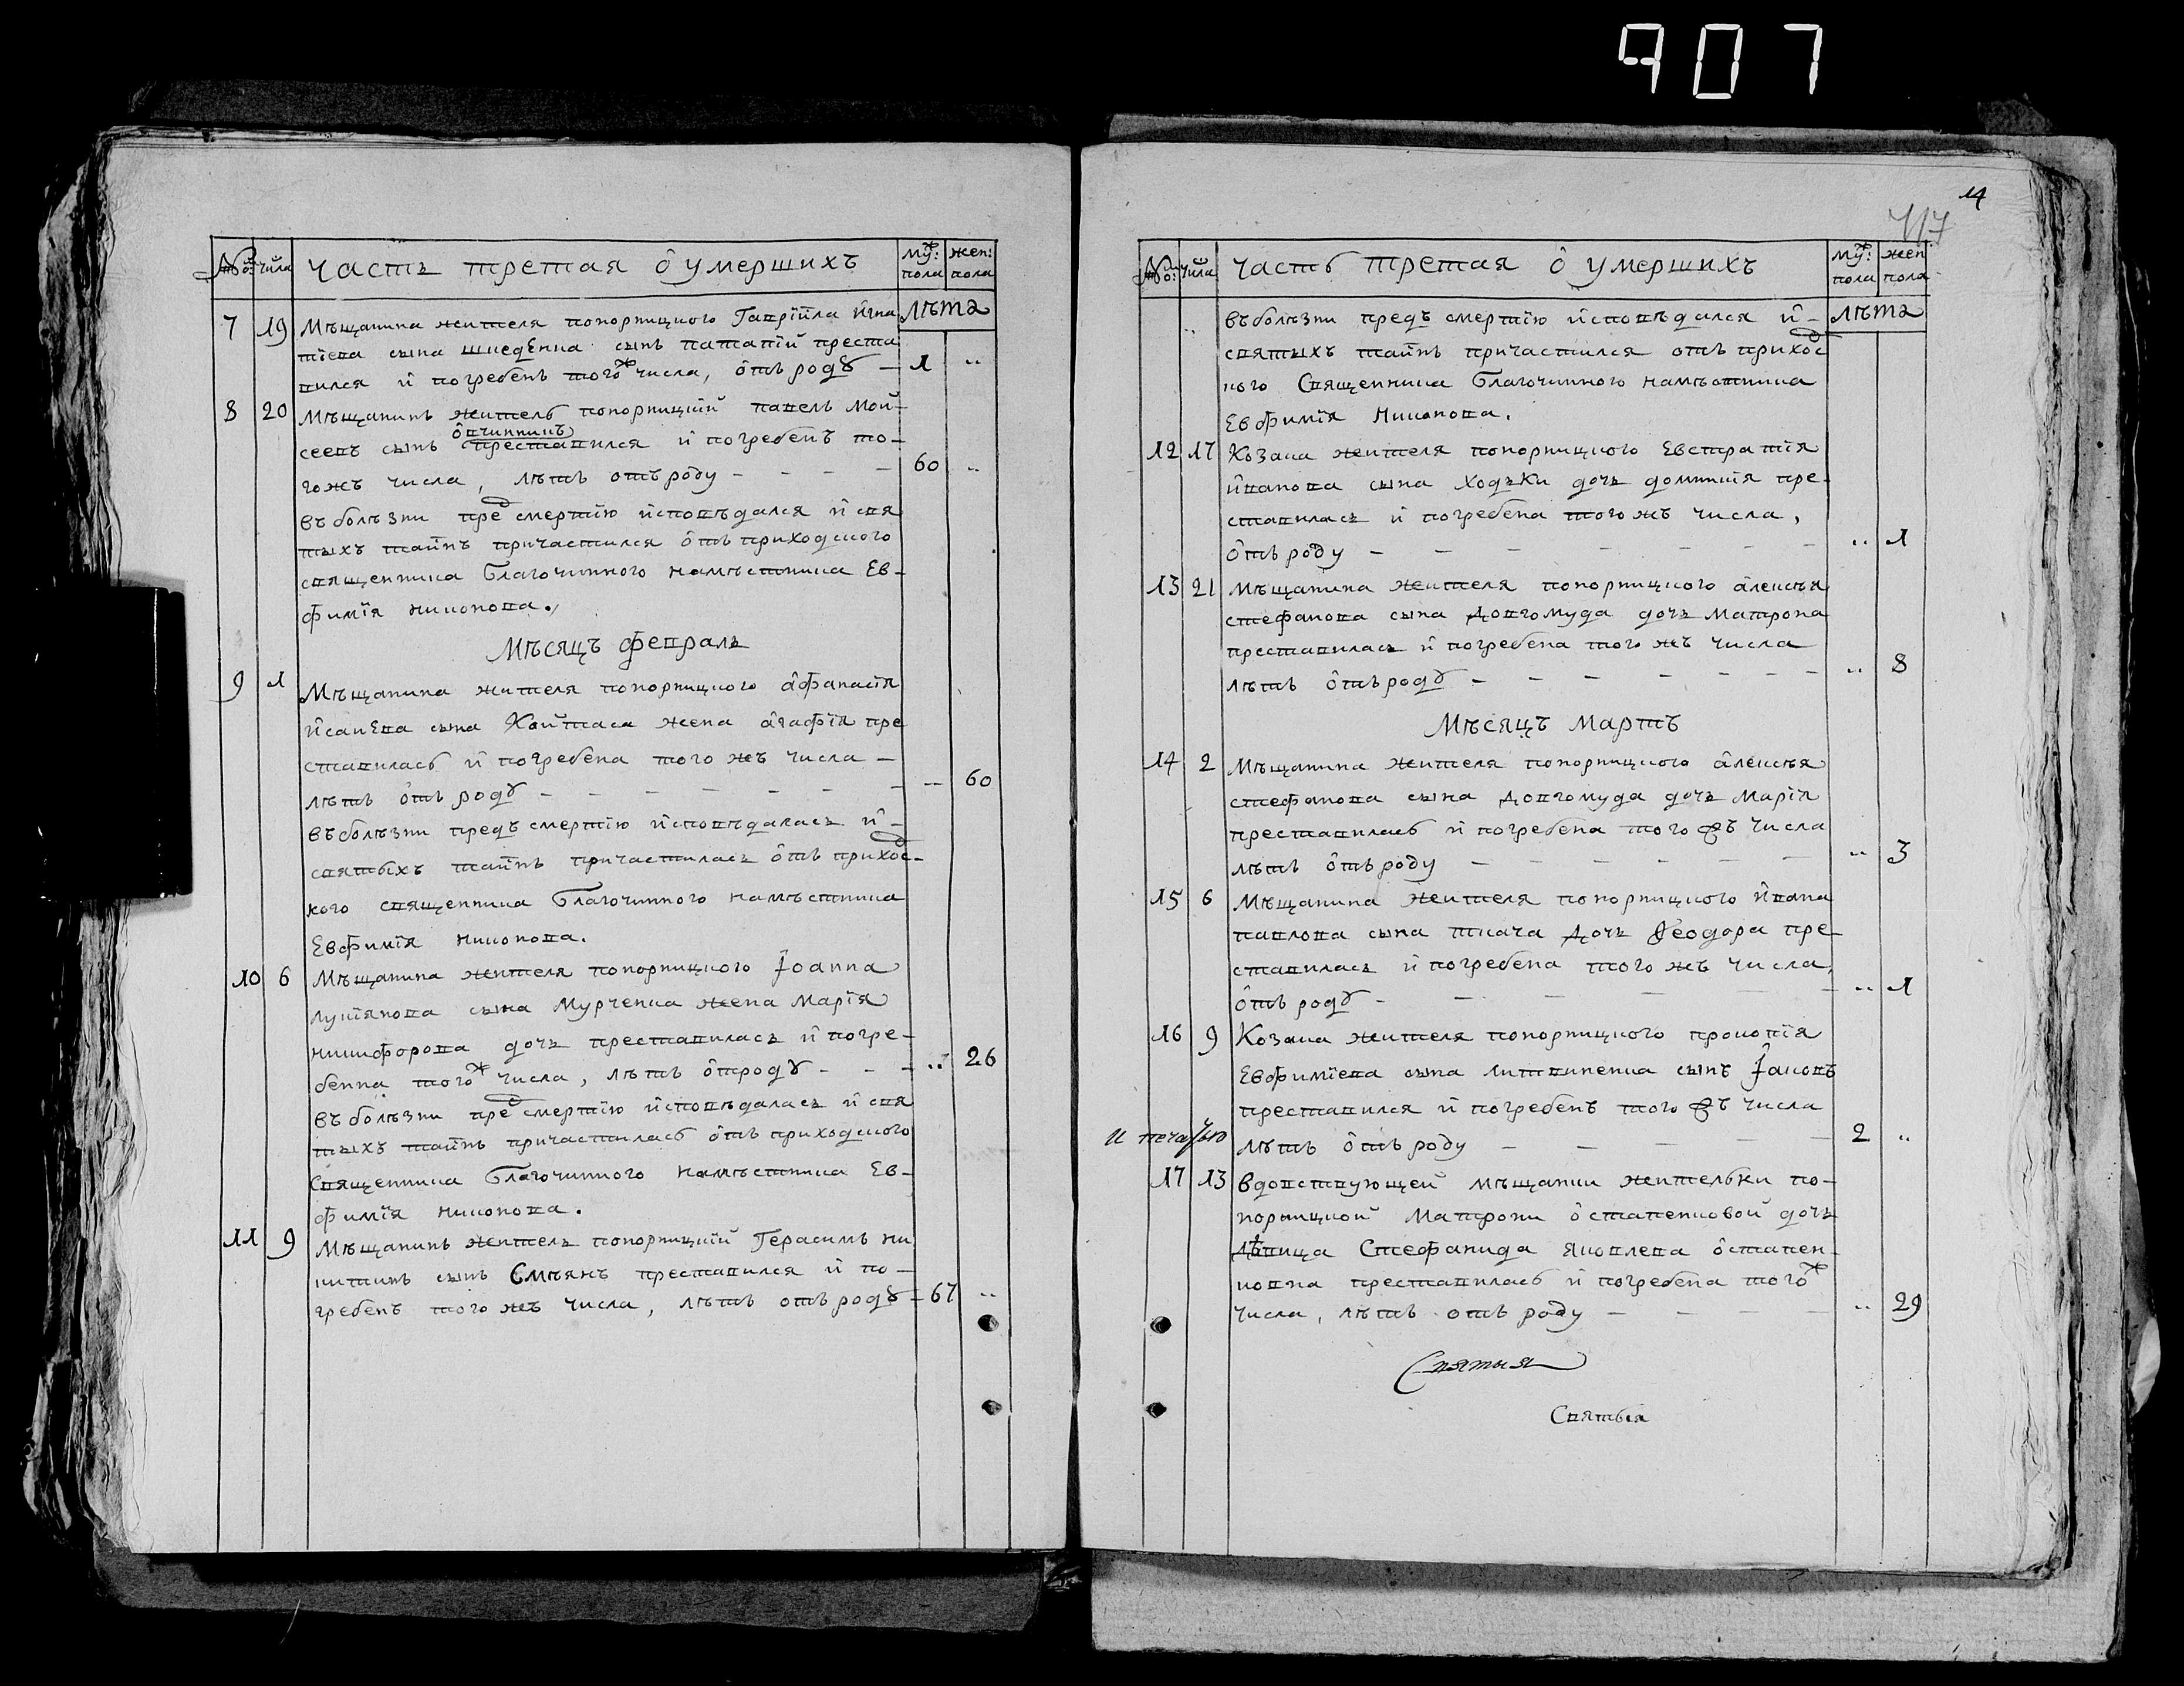 907
№ числа Часть третая о умершихъ муж: пола жен: пола
лѣта
7 19 Мѣщанина жителя понорницкого Гавріила Игна
тіева сына Шведенка сынъ Патапій преста
вился и погребенъ того ж числа, отъ роду — 1 „
8 20 Мѣщанинъ житель понорницкій Павелъ Мой-
сеевъ сынъ Овчинникъ преставился и погребенъ то-
гожъ числа, лѣтъ отъ роду - - - 60 „
въ болѣзни пред смертію исповѣдался и свя
тыхъ таинъ причастился отъ приходского
священника Благочинного намѣстника Ев-
фимія Никонова.
Мѣсяцъ февраль
9 1 Мѣщанина жителя понорницкого Афанасія
Исакиева сына жена Агафія пре
ставилась и погребена того жъ числа —
лѣтъ отъ роду - - - - - - - „ 60
въ болѣзни предъ смертію исповѣдалась и -
святыхъ таинъ причастилась отъ приходс-
кого священника Благочинного намѣстника
Евфимія Никонова.
10 6 Мѣщанина жителя понорницкого Іоанна
Лукіянова сына Мурченка жена Марія
Никифорова дочь преставилась и погре-
бенна того ж числа, лѣтъ отроду - - - „ 26
въ болѣзни пред смертію исповѣдалась и свя
тыхъ таинъ причастилась отъ приходского
Священника Благочинного намѣстника Ев-
фимія Никонова.
11 9 Мѣщанинъ житель понорницкій Герасимъ Ни
китинъ сынъ Смѣянъ преставился и по-
гребенъ того жъ числа, лѣтъ отъ роду - 67 „
14
№ числа Часть третая о умершихъ муж: пола жен пола
лѣта
„ въ болѣзни предъ смертію исповѣдался и -
святыхъ таинъ причастился отъ приходс
кого Священника Благочинного намѣстника
Евфимія Никонова.
12 17 Козака жителя понорницкого Евстратія
Иванова сына Ходъки дочь Домникія пре-
ставилась и погребена того жъ числа,
отъ роду - - - - - - - „ 1
13 21 Мѣщанина жителя понорницкого Алексѣя
Стефанова сына Довгомуда дочь Матрона
преставилась и погребена того жъ числа
лѣтъ отъ роду - - - - - - - „ 8
Мѣсяцъ Мартъ
14 2 Мѣщанина жителя понорницкого Алексѣя
Стефанова сына Довгомуда дочь Марія
преставилась и погребена того жъ числа
лѣтъ отъ роду - - - - - - „ 3
15 6 Мѣщанина жителя понорницкого Ивана
Павлова сына Ткача дочь Ѳеодора пре-
ставилась и погребена того жъ числа,
отъ роду - - - - - - „ 1
16 9 Козака жителя понорницкого Прокопія
Евфиміева сына Литвиненка сынъ Іаковъ
преставился и погребенъ того жъ числа
и печатью лѣтъ отъ роду - - - - - 2 „
17 13 Вдовствующей мѣщанки жительки по-
норницкой Матрони Остапенковой дочь
дѣвица Стефанида Яковлева Остапен-
ковна преставилась и погребена того ж
числа, лѣтъ отъ роду - - - - „ 29
Святыя
Святыя